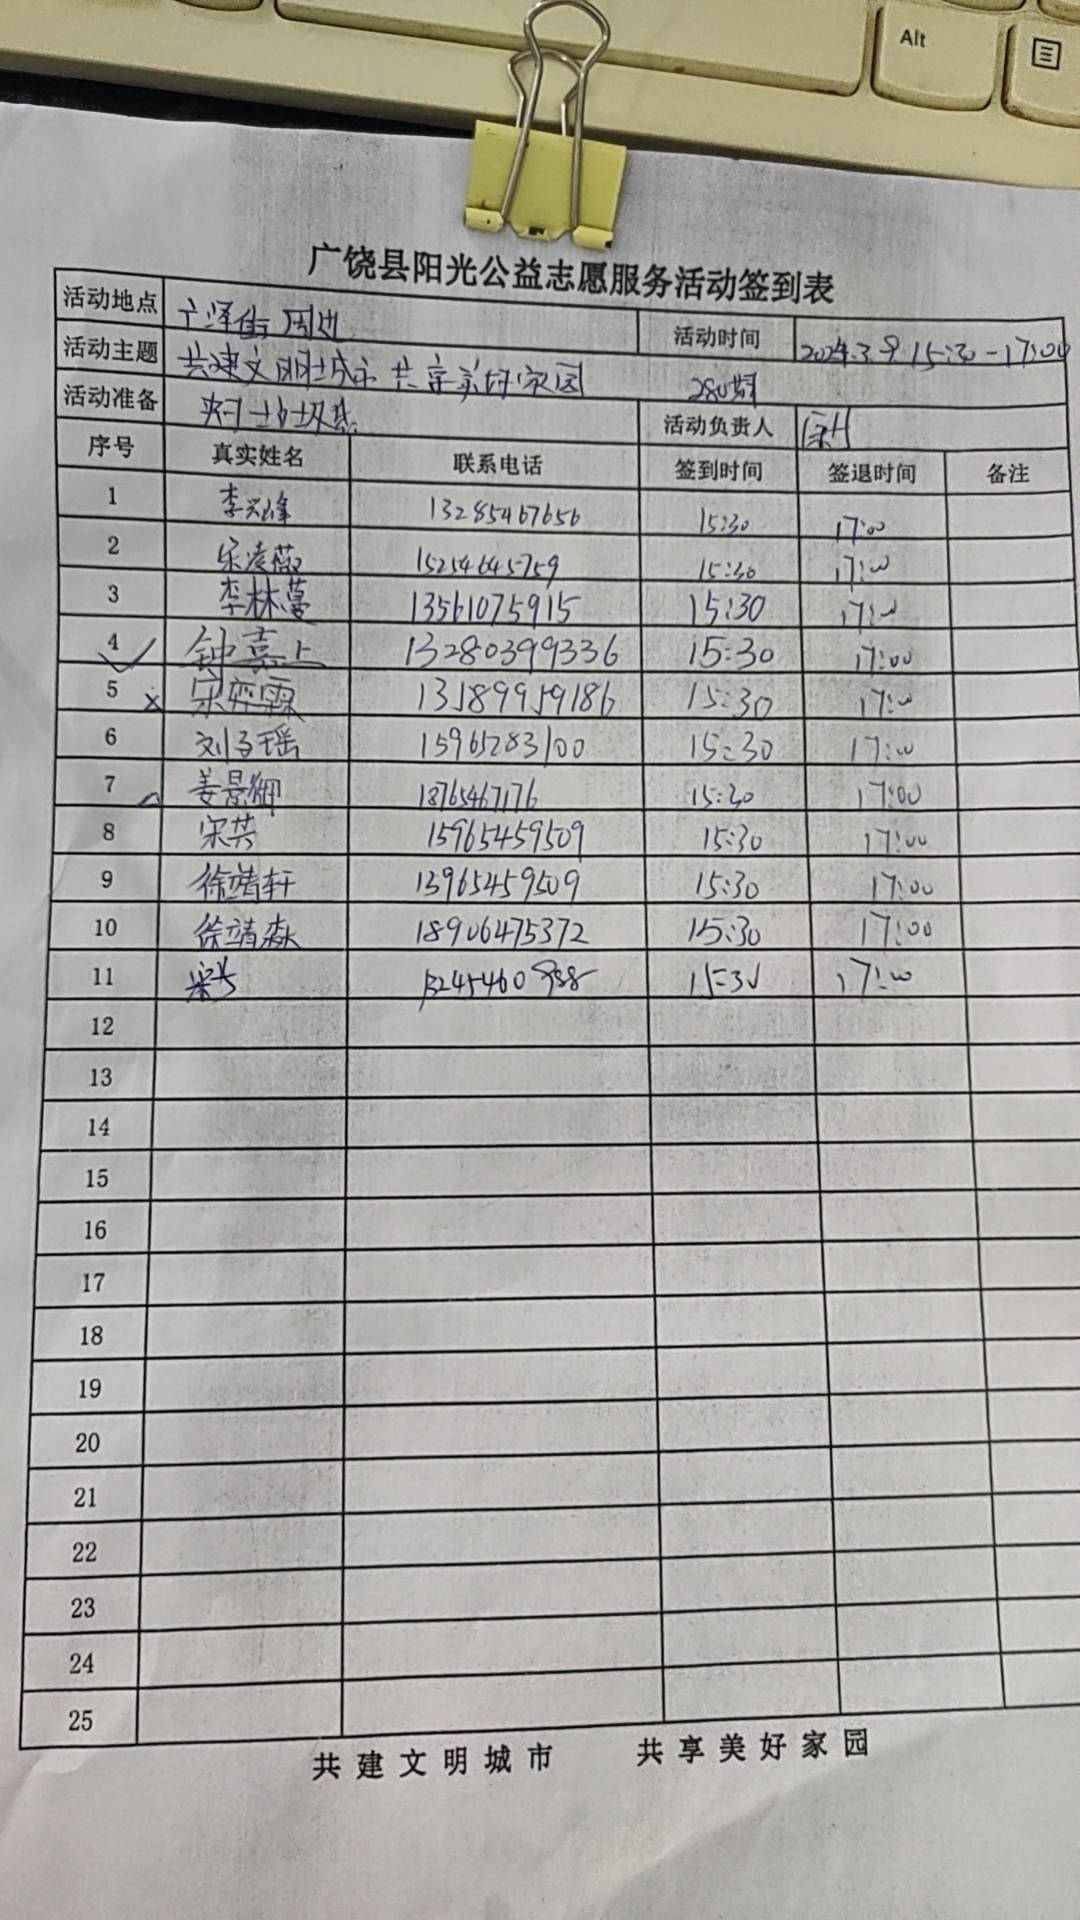 Alt
广饶县阳光公益志愿服务活动签到表
活动地点 广泽街周边 活动时间 2024.3.9 15:30-17:00
活动主题 共建文明城市 共享美好家园 280期
活动准备 夹子 垃圾袋 活动负责人
序号 真实姓名 联系电话 签到时间 签退时间 备注
1 李兴峰 13285467656 15:30 17:00
2 宋凌薇 15254645759 15:30 17:00
3 李林蔓 13561075915 15:30 17:00
4 钟嘉上 13280399336 15:30 17:00
5 宋弈霖 13189959186 15:30 17:00
6 刘子瑶 15965283100 15:30 17:00
7 姜景卿 18765467176 15:30 17:00
8 宋芸 15965459509 15:30 17:00
9 徐靖轩 15965459509 15:30 17:00
10 徐靖森 18906475372 15:30 17:00
11 15:30 17:00
12
13
14
15
16
17
18
19
20
21
22
23
24
25
共建文明城市 共享美好家园